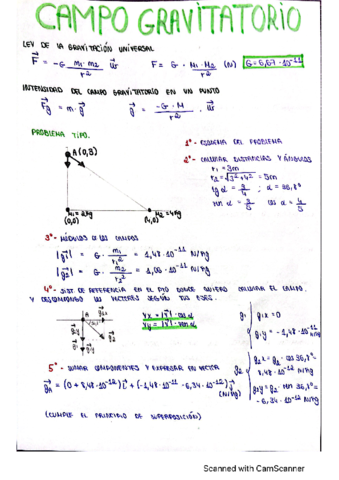 CAMPO GRAVITATORIO
LEY DE LA GRAVITACIÓN UNIVERSAL
F = -G m1·m2 / r² ur   F = G · M1·M2 / r² (N)   G = 6,67·10⁻¹¹
INTENSIDAD DEL CAMPO GRAVITATORIO EN UN PUNTO
Fg = m·g   g = -G·M / r² · ur
PROBLEMA TIPO:
A(0,3)
1º- ESQUEMA DEL PROBLEMA
2º- CALCULAR DISTANCIAS Y ÁNGULOS
r1 = 3m
r2 = √3²+4² = 5m
tg α = 3/4 ; α = 36,8º
sen α = 3/5   cos α = 4/5
M1 = 2kg   M2 = 4kg
(0,0)   (4,0)
3º- MÓDULOS DE LOS CAMPOS
|g1| = G · m1/r² = 1,48·10⁻¹¹ N/kg
|g2| = G · m2/r² = 1,06·10⁻¹¹ N/kg
4º- SIST. DE REFERENCIA EN EL PTO DONDE QUIERO CALCULAR EL CAMPO
Y DESCOMPONGO LOS VECTORES SEGÚN SUS EJES.
A
Vx = |V|·cos α
Vy = |V|·sen α
g1 g1x = 0
g1y = -1,48·10⁻¹¹ N/kg
5º- SUMAR COMPONENTES Y EXPRESAR EN VECTOR
g2 g2x = g2 · cos 36,8º
8,48·10⁻¹² N/kg
g2y = g2 · sen 36,8º =
-6,34·10⁻¹² N/kg
gA = (0 + 8,48·10⁻¹²) i + (-1,48·10⁻¹¹ - 6,34·10⁻¹²) j (N/kg)
(CUMPLE EL PRINCIPIO DE SUPERPOSICIÓN)
Scanned with CamScanner